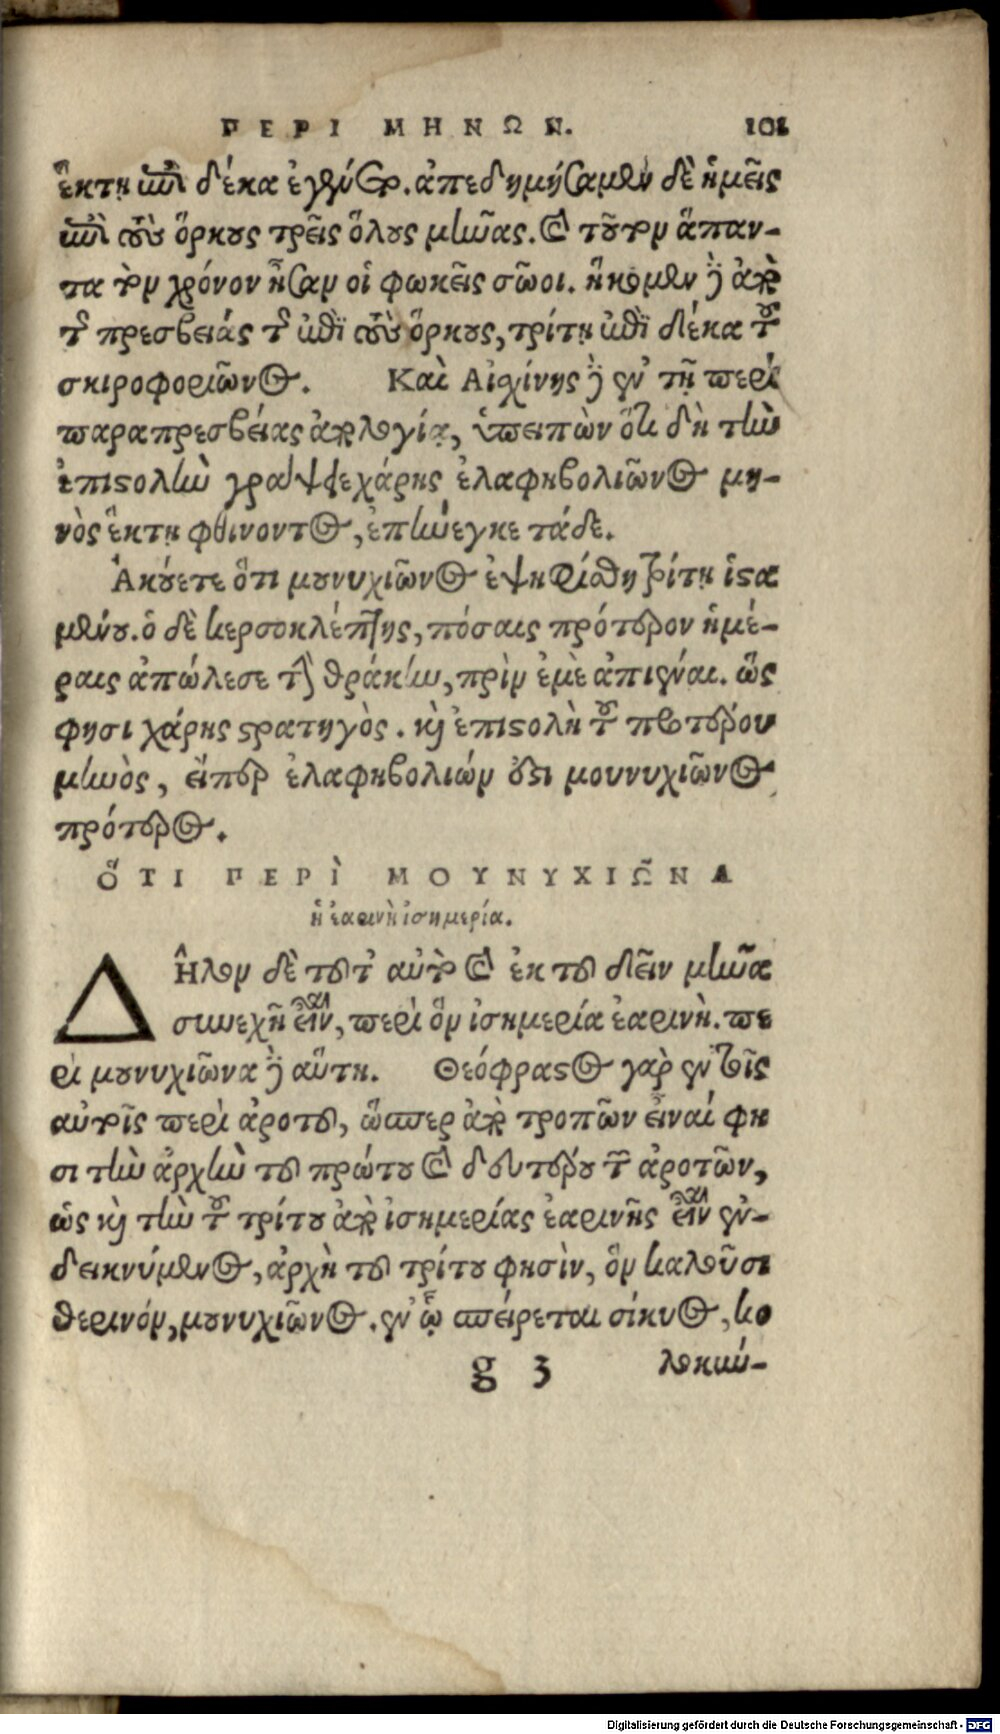 ΠΕΡΙ ΜΗΝΩΝ. 101
ἕκτῃ ἐπὶ δέκα ἐγένετο. ἀπεδημήσαμεν δὲ ἡμεῖς
ἐπὶ τοὺς ὅρκους τρεῖς ὅλους μῆνας. καὶ τοῦτον ἅπαν-
τα τὸν χρόνον ἦσαν οἱ φωκεῖς σῶοι. ἥκομεν δὲ ἀπὸ
τῆς πρεσβείας τῆς ἐπὶ τοὺς ὅρκους, τρίτῃ ἐπὶ δέκα τοῦ
σκιροφοριῶνος. Καὶ Αἰσχίνης δὲ ἐν τῇ περὶ
παραπρεσβείας ἀπολογίᾳ, ὑπειπὼν ὅτι δὴ τὴν
ἐπιστολὴν γράψψε χάρης ἐλαφηβολιῶνος μη-
νὸς ἕκτῃ φθίνοντος, ἐπήνεγκε τάδε.
Ἀκούετε ὅτι μουνυχιῶνος ἐψηφίσθη τρίτῃ ἱστα
μένου. ὁ δὲ κερσοκλέπτης, πόσαις πρότερον ἡμέ-
ραις ἀπώλεσε τὴν θράκην, πρὶν ἐμὲ ἀπιέναι. ὥς
φησι χάρης στρατηγὸς. καὶ ἐπιστολὴ τοῦ προτέρου
μηνὸς, εἴπερ ἐλαφηβολιών ἐστι μουνυχιῶνος
πρότερος.
ὍΤΙ ΠΕΡῚ ΜΟΥΝΥΧΙΩ͂ΝΑ
ἡ ἐαρινὴ ἰσημερία.
ΔΗ͂λον δὲ τοῦτ’ αὐτὸ καὶ ἐκ τοῦ δεῖν μῆνα
συνεχῆ εἶναι, περὶ ὃν ἰσημερία ἐαρινὴ. πε
ρὶ μουνυχιῶνα δὲ αὕτη. Θεόφραστος γὰρ ἐν τοῖς
αὐτοῖς περὶ ἀρότου, ὥσπερ ἀπὸ τροπῶν εἶναί φη
σι τὴν ἀρχὴν τοῦ πρώτου καὶ δευτέρου τῶν ἀροτῶν,
ὡς καὶ τὴν τοῦ τρίτου ἀπὸ ἰσημερίας ἐαρινῆς εἶναι ἐν-
δεικνύμενος, ἀρχὴ τοῦ τρίτου φησὶν, ὃν καλοῦσι
θερινόν, μουνυχιῶνος. ἐν ᾧ σπείρεται σίκυος, κο
g 3 λοκύν-
Digitalisierung gefördert durch die Deutsche Forschungsgemeinschaft - DFG